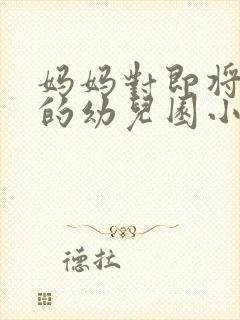 妈妈對即将
的幼兒園小
德拉